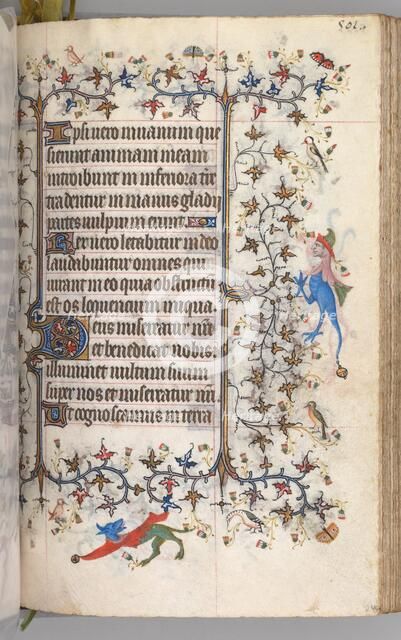 501.
Ipsi vero in vanum que
sierunt animam meam
introibunt in inferiora terre
tradentur in manus gladii
partes vulpium erunt.
Rex vero letabitur in deo
laudabuntur omnes qui
iurant in eo quia obstructum
est os loquencium iniqua
Deus misereatur nostri
et benedicat nobis
illuminet vultum suum
super nos et misereatur nostri
Ut cognoscamus in terra